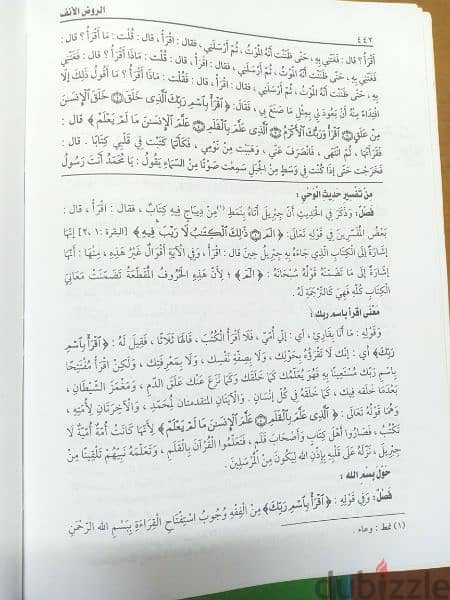 الروض الأنف
٤٤٢
أَقْرَأُ؟ قال: فَغَتَّنِي بِهِ، حَتَّى ظَنَنْتُ أنَّهُ الْمَوْتُ، ثُمَّ أَرْسَلَنِي، فقال: اقْرَأْ، قال: قُلْت: مَا أَقْرَأُ؟ قال:
فَغَتَّنِي بِهِ، حَتَّى ظَنَنْتُ أَنَّهُ الْمَوْتُ، ثُمَّ أَرْسَلَنِي، فقال: اقْرَأْ، قال: قُلْت: مَاذَا أَقْرَأُ؟ قال: فَغَتَّنِي
بِهِ، حَتَّى ظَنَنْتُ أَنَّهُ الْمَوْتُ، ثُمَّ أَرْسَلَنِي، فقال: اقْرَأْ، قال: فَقُلْت: مَاذَا أَقْرَأُ؟ مَا أَقُولُ ذَلِكَ إلَّا
افْتِدَاءً مِنْهُ أَنْ يَعُودَ لِي بِمِثْلِ مَا صَنَعَ بِي، فَقَالَ: ﴿اقْرَأْ بِاسْمِ رَبِّكَ الَّذِي خَلَقَ ۝ خَلَقَ الْإِنْسَنَ
مِنْ عَلَقٍ ۝ اقْرَأْ وَرَبُّكَ الْأَكْرَمُ ۝ الَّذِي عَلَّمَ بِالْقَلَمِ ۝ عَلَّمَ الْإِنْسَنَ مَا لَمْ يَعْلَمْ﴾ قال:
فَقَرَأْتُهَا، ثُمَّ انْتَهَى، فَانْصَرَفَ عَنِّي، وَهَبَبْت مِنْ نَوْمِي، فَكَأَنَّمَا كُتِبَتْ فِي قَلْبِي كِتَابًا. قَالَ:
فَخَرَجْت حَتَّى إذَا كُنْت فِي وَسَطٍ مِنْ الْجَبَلِ سَمِعْت صَوْتًا مِنْ السَّمَاءِ يَقُولُ: يَا مُحَمَّدُ أَنْتَ رَسُولُ
مِنْ تَفْسِيرِ حَدِيثِ الْوَحْيِ:
فَصْلٌ: وَذَكَرَ فِي الْحَدِيثِ أَنَّ جِبْرِيلَ أَتَاهُ بِنَمَطٍ (١) مِنْ دِيبَاجٍ فِيهِ كِتَابٌ، فقال: اقْرَأْ، قال:
بَعْضُ الْمُفَسِّرِينَ فِي قَوْلِهِ تَعَالَى: ﴿الم ۝ ذَلِكَ الْكِتَبُ لَا رَيْبَ فِيهِ﴾ [البقرة: ١، ٢] إنَّهَا
إشَارَةٌ إلَى الْكِتَابِ الَّذِي جَاءَهُ بِهِ جِبْرِيلُ حِينَ قال: اقْرَأْ، وَفِي الْآيَةِ أَقْوَالٌ غَيْرُ هَذِهِ، مِنْهَا: أَنَّهَا
إشَارَةٌ إلَى مَا تَضَمَّنَهُ قَوْلُهُ سُبْحَانَهُ: ﴿الم﴾؛ لِأَنَّ هَذِهِ الْحُرُوفَ الْمُقَطَّعَةَ تَضَمَّنَتْ مَعَانِيَ
الْكِتَابِ كُلِّهِ فَهِيَ كَالتَّرْجَمَةِ لَهُ.
مَعْنَى اقْرَأْ بِاسْمِ رَبِّك:
وَقَوْلِهِ: مَا أَنَا بِقَارِئٍ، أَيْ: إنِّي أُمِّيٌّ، فَلَا أَقْرَأُ الْكُتُبَ، قَالَهَا ثَلَاثًا، فَقِيلَ لَهُ: ﴿اقْرَأْ بِاسْمِ
رَبِّكَ﴾ أَيْ: إنَّك لَا تَقْرَؤُهُ بِحَوْلِك، وَلَا بِصِفَةِ نَفْسِك، وَلَا بِمَعْرِفَتِك، وَلَكِنْ اقْرَأْ مُفْتَتِحًا
بِاسْمِ رَبِّك مُسْتَعِينًا بِهِ فَهُوَ يُعَلِّمُك كَمَا خَلَقَك وَكَمَا نَزَعَ عَنْك عَلَقَ الدَّمِ، وَمَغْمَزَ الشَّيْطَانِ،
بَعْدَمَا خَلَقَهُ فِيك، كَمَا خَلَقَهُ فِي كُلِّ إنْسَانٍ. وَالْآيَتَانِ الْمُتَقَدِّمَتَانِ لِمُحَمَّدٍ، وَالْآخِرَتَانِ لِأُمَّتِهِ،
وَهُمَا قَوْلُهُ تَعَالَى: ﴿الَّذِي عَلَّمَ بِالْقَلَمِ ۝ عَلَّمَ الْإِنْسَنَ مَا لَمْ يَعْلَمْ﴾ لِأَنَّهَا كَانَتْ أُمَّةً أُمِّيَّةً لَا
تَكْتُبُ، فَصَارُوا أَهْلَ كِتَابٍ وَأَصْحَابَ قَلَمٍ، فَتَعَلَّمُوا الْقُرْآنَ بِالْقَلَمِ، وَتَعَلَّمَهُ نَبِيُّهُمْ تَلْقِينًا مِنْ
جِبْرِيلَ، نَزَّلَهُ عَلَى قَلْبِهِ بِإِذْنِ اللهِ لِيَكُونَ مِنْ الْمُرْسَلِينَ.
حَوْلَ بِسْمِ الله:
فَصْلٌ: وَفِي قَوْلِهِ: ﴿اقْرَأْ بِاسْمِ رَبِّكَ﴾ مِنْ الْفِقْهِ وُجُوبُ اسْتِفْتَاحِ الْقِرَاءَةِ بِبِسْمِ اللهِ الرَّحْمَنِ
(١) نمط: وعاء.
dubizzle